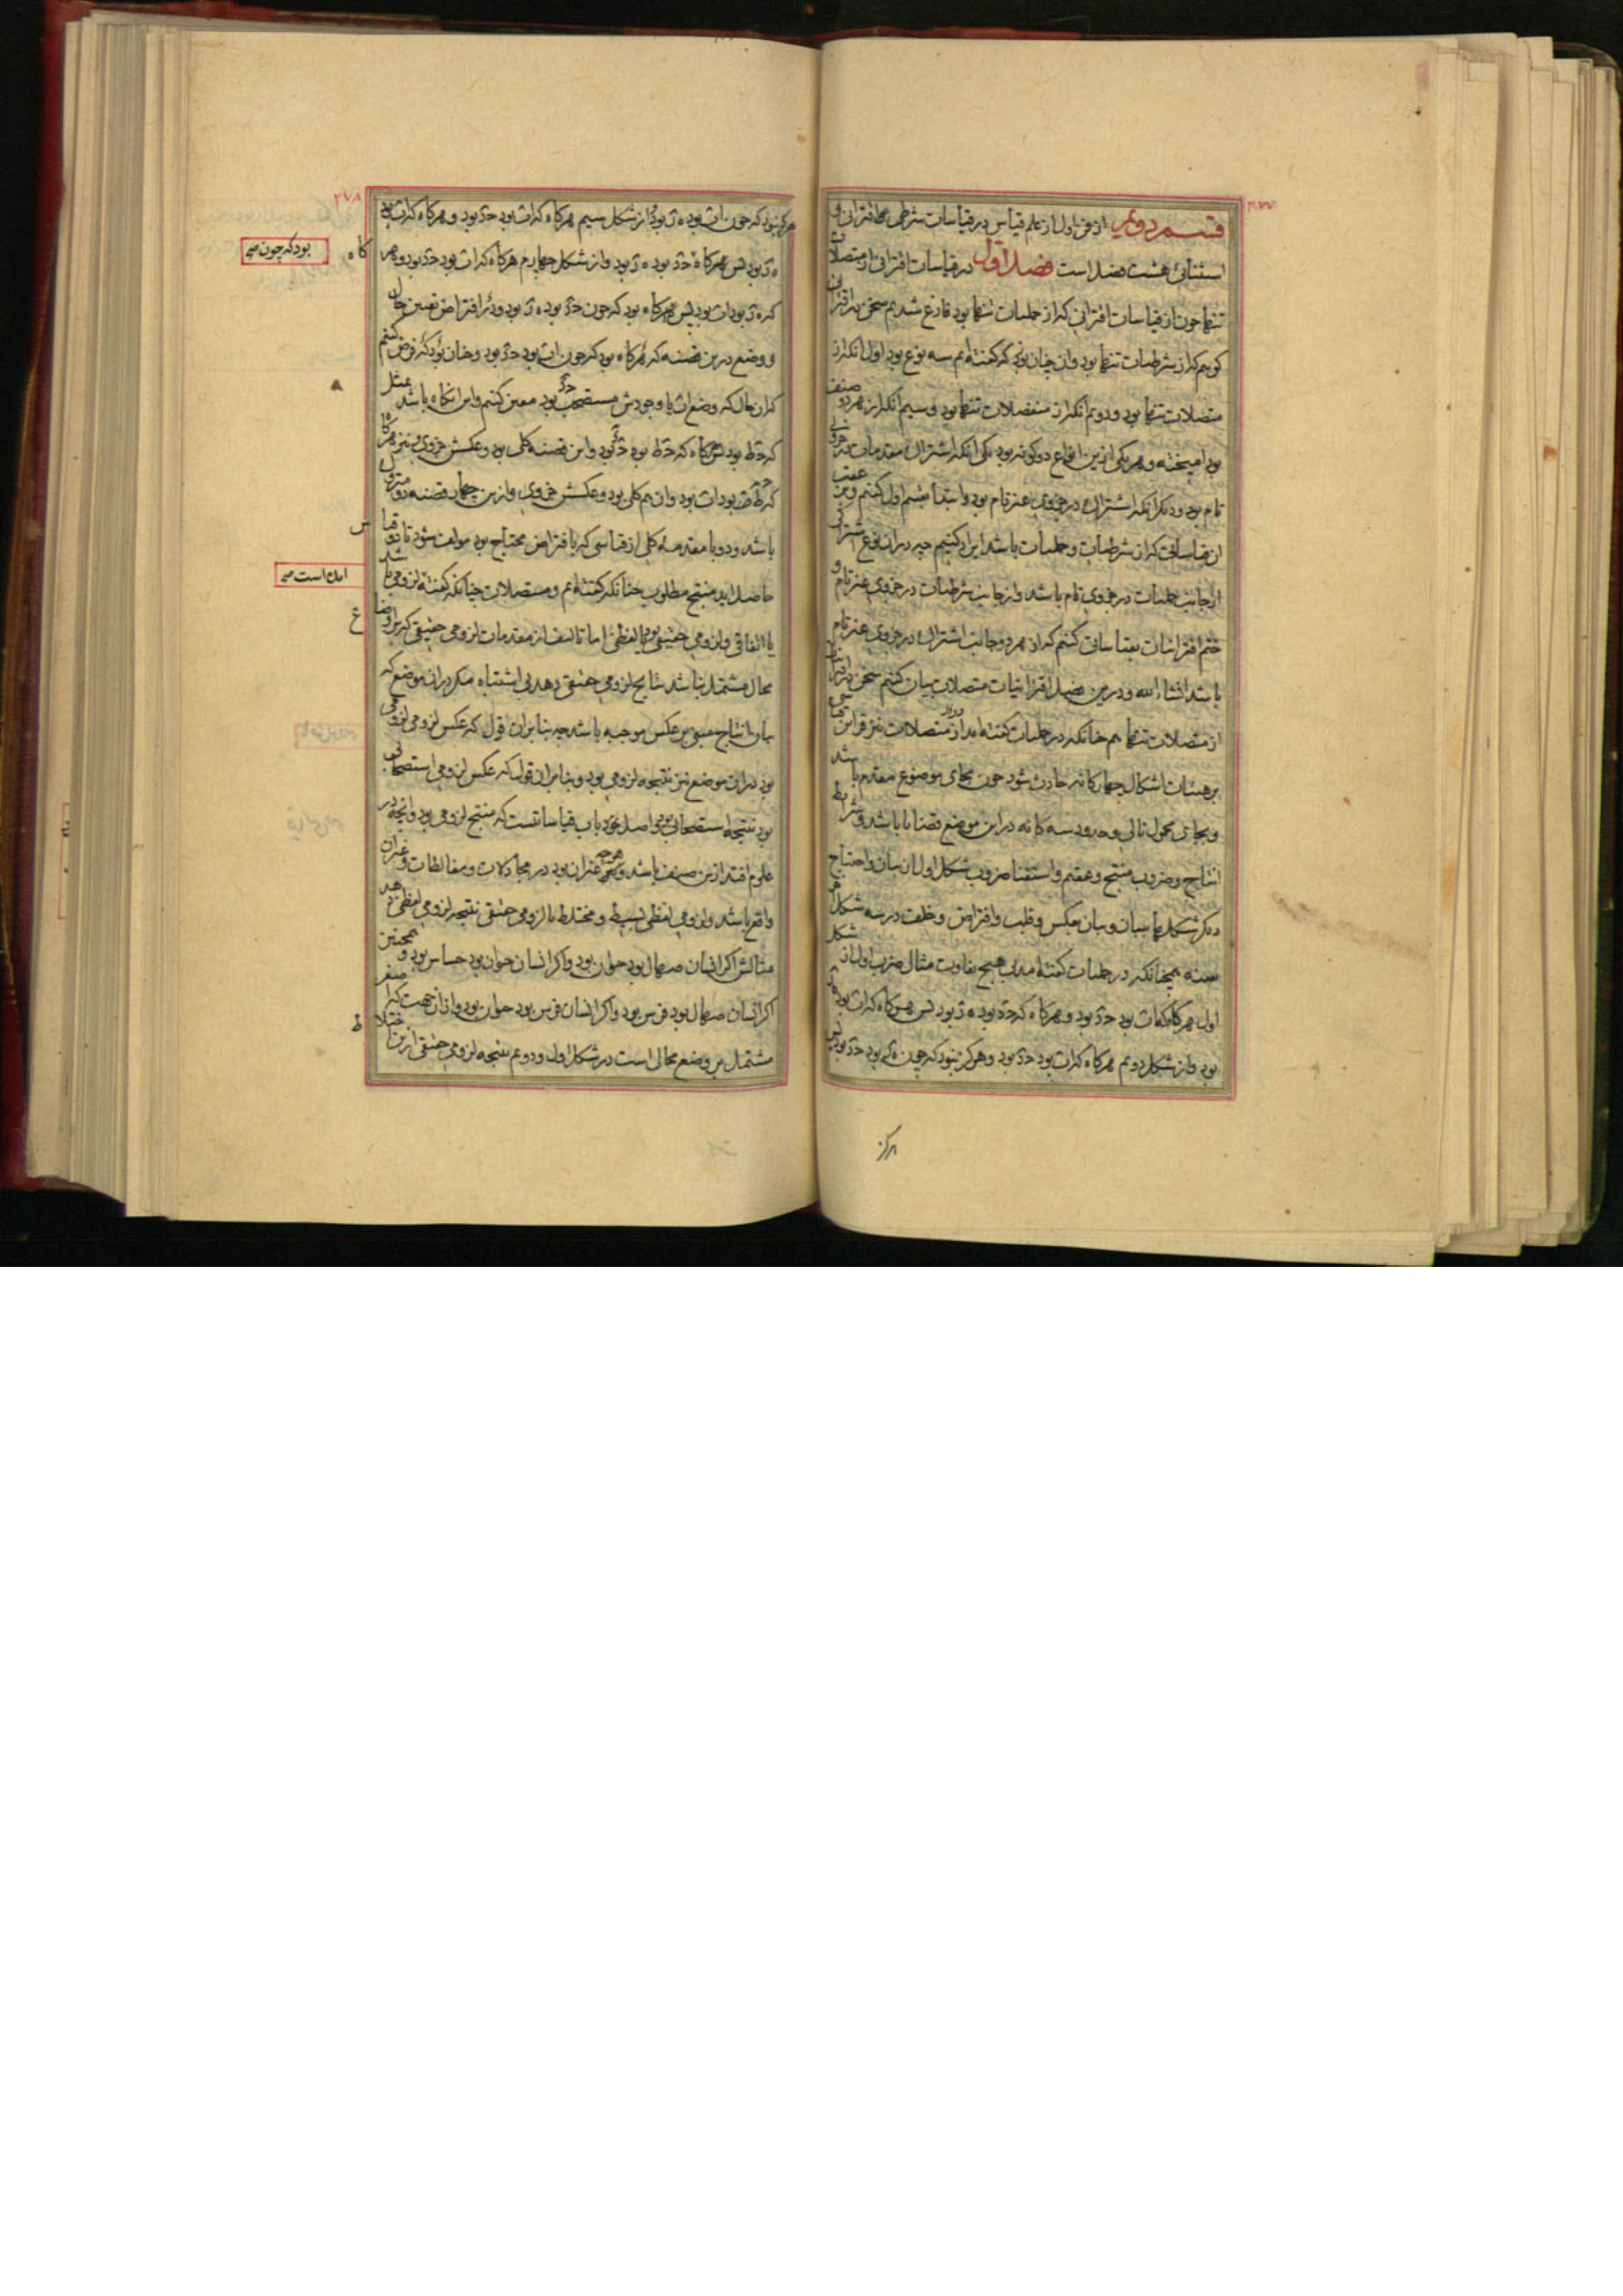 ٢٧٧
قسم دویم از فن اول از علم قیاس در قیاسات شرطی اقترانی و
استثنائی هشت فصل است فصل اول در قیاسات اقترانی از متصلات
تنها چون از قیاسات اقترانی که از حملیات تنها بود فارغ شدیم سخن در اقترانی
گوییم که از شرطیات تنها بود و آن چنان بود که گفته‌ایم سه نوع بود اول آنکه از
متصلات تنها بود و دویم آنکه از منفصلات تنها بود و سیم آنکه از هر دو صنف
بود آمیخته و هر یکی ازین انواع دو گونه بود یکی آنکه اشتراک مقدمات در جزوی
تام بود و دیگر آنکه اشتراک در جزوی غیر تام بود و ابتدا بقسم اول کنیم و برعقب
آن قیاساتی که از شرطیات و حملیات باشد ایراد کنیم چه در آن نوع اشتراک
از جانب حملیات در جزوی تام باشد و از جانب شرطیات در جزوی غیر تام و
ختم اقترانیات بقیاساتی کنیم که از هر دو جانب اشتراک در جزوی غیر تام
باشد انشاء الله و درین فصل اقترانیات متصلات بیان کنیم
از متصلات تنها هم چنانکه در حملیات گفته آمد از متصلات نیز قراین
بر هیئات اشکال چهارگانه حادث شود چون بجای موضوع مقدم باشد
و بجای محمول تالی و حدود سه گانه در این موضع قضایا باشد و شرایط
انتاج و ضروب منتج و عقیم و استغنا ضروب شکل اول از بیان و احتیاج
دیگر شکلها ببیان و بیان بعکس و قلب و افتراض و خلف در سه شکل
همچنانکه در حملیات گفته آمد بی هیچ تفاوت مثال ضرب اول از شکل
اول هرگاه که اٮ بود حد بود و هرگاه که حد بود ه ز بود پس هرگاه که اٮ بود ه ز
بود و از شکل دویم هرگاه که اٮ بود حد بود و هرگز نبود که چون ه ز بود حد بود پس
هرگز
٢٧٨
هرگز نبود که چون اٮ بود ه ز بود و از شکل سیم هرگاه که اٮ بود حد بود و هرگاه که اٮ بود
ه ز بود پس گاه بود که چون حد بود ه ز بود و از شکل چهارم هرگاه که اٮ بود حد بود و هرگاه
بود که چون صح
که ه ز بود اٮ بود پس گاه بود که چون حد بود ه ز بود و در افتراض تعیین حال
و وضع درین قضیه که گاه بود که چون اٮ بود حد بود چنان بود که فرض کنیم
که آن حال که وضع اٮ با وجودش مستصحب حد بود معین کنیم و این آنگاه باشد مثل
باشد و دو با مقدمه کلی از قیاسی که بافتراض محتاج بود مولف شود تا دو قیاس
حاصل آید منتج مطلوب چنانکه گفته‌ایم و متصلات چنانکه گفته لزومی باشد
اما است صح
یا اتفاقی و لزومی حقیقی بود یا لفظی اما تالیف از مقدمات لزومی حقیقی که بر اوضاع
محال مشتمل نباشد نتایج لزومی حقیقی دهد بی اشتباه مگر در آن موضع که
بیان انتاج مبنی بر عکس موجبه باشد چه بنا بر آن قول که عکس لزومی لزومی
بود در آن موضع نیز نتیجه لزومی بود و بنا بر آن قول که عکس لزومی استصحابی
بود نتیجه استصحابی بود و اصل خود باب قیاساتست که منتج لزومی بود و آنچه در
علوم افتد ازین صنف باشد و هرچه غیر آن بود در مجادلات و مغالطات و غیر آن
واقع باشد و لزومی لفظی بسیط و مختلط با لزومی حقیقی نتیجه لزومی لفظی دهد
مثالش اگر انسان صهال بود حیوان بود و اگر انسان حیوان بود حساس بود و همچنین
اگر انسان صهال بود فرس بود و اگر انسان فرس بود حیوان بود و از آن جهت که صغری
مشتمل بر وضع محالی است در شکل اول و دویم نتیجه لزومی حقیقی ازین اختلاط